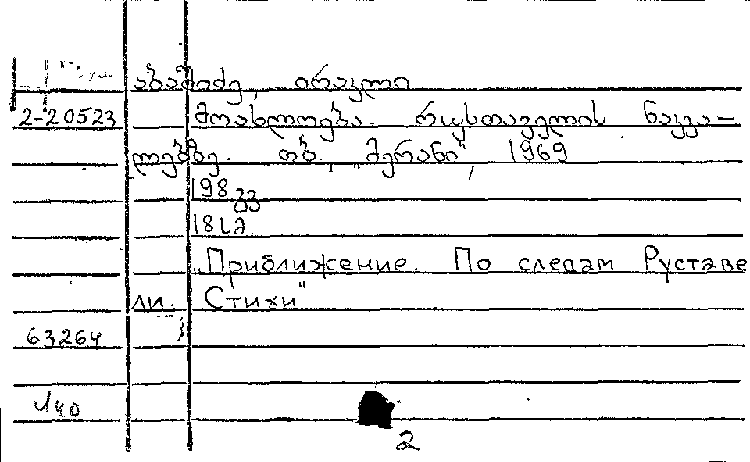 აბაშიძე, ირაკლი
2-20523 მოახლოება. რუსთაველის ნაკვა-
ლევზე. თბ., „მერანი", 1969
198 გვ
18 სმ
„Приближение. По следам Руставе
ли. Стихи"
63264
2